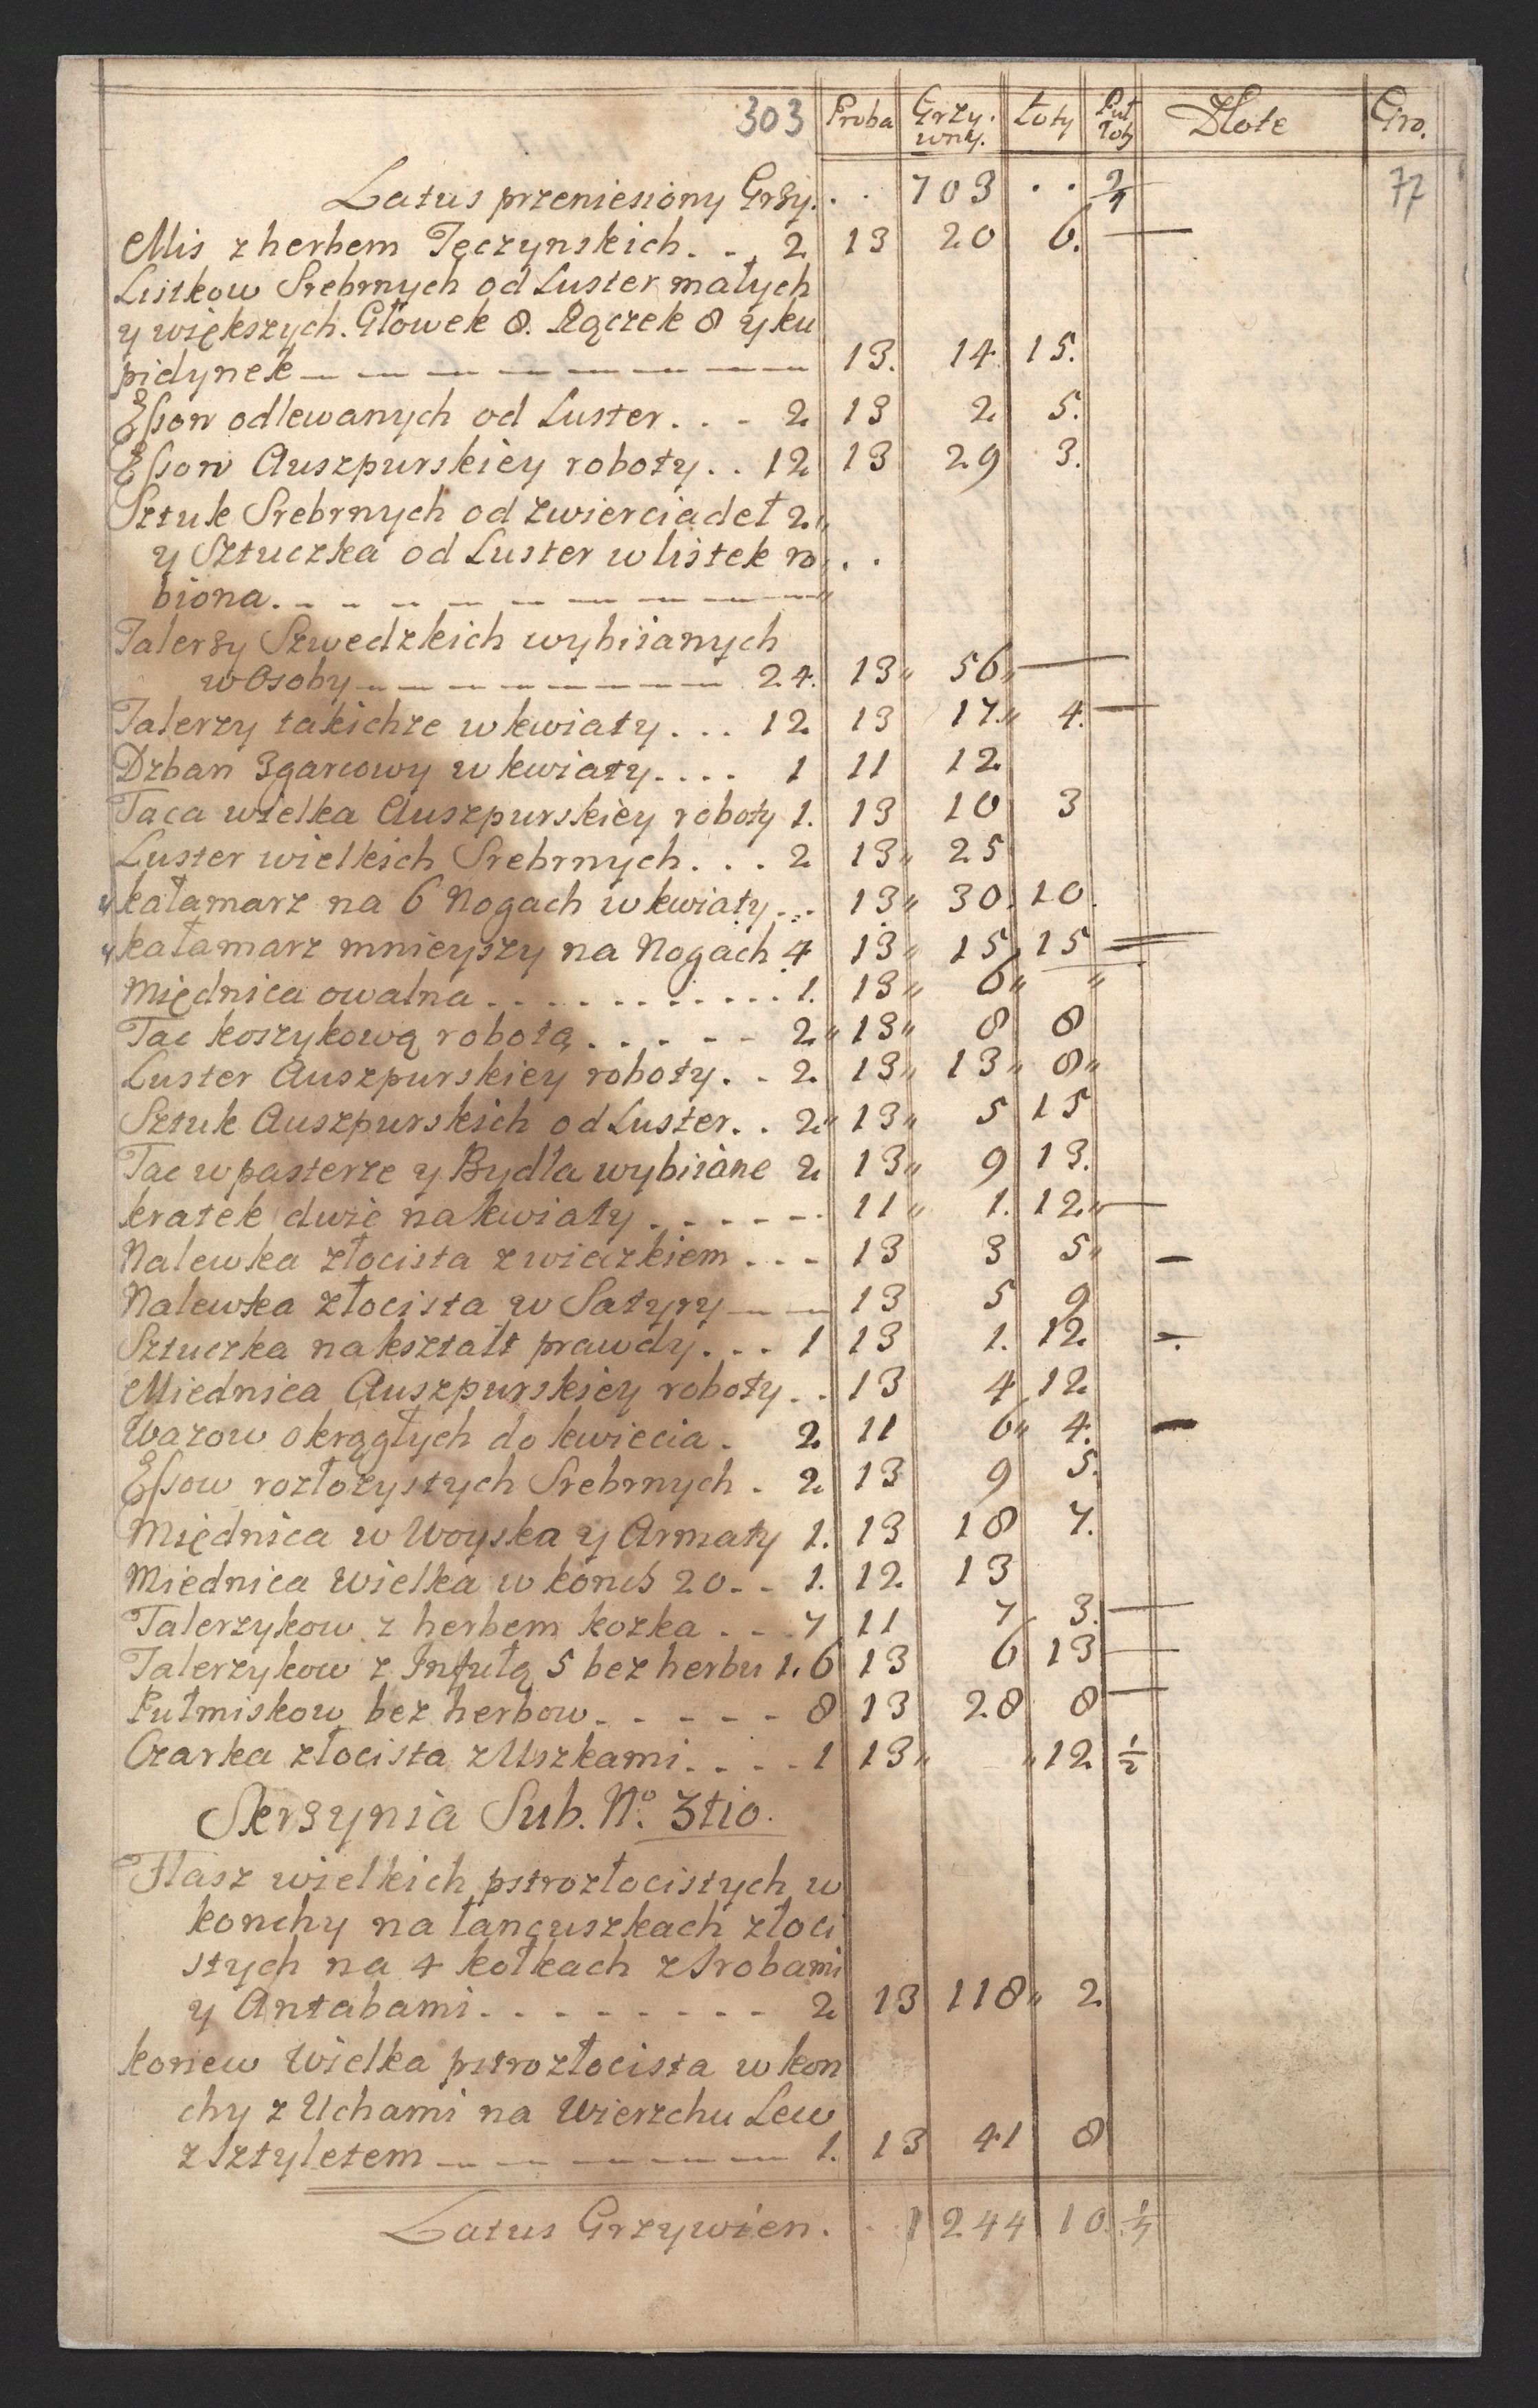 303 Proba Grzy. wny. Łoty Puł łoty Złote Gro.
77
Latus przeniesiony Grzy. . . 703 . .
Mis z herbem Tęczynskich. . . 2 13 20 6. —
Listkow Srebrnych od Luster małych
y większych. Głowek 8. Rączek 8 y ku
pidynek — — — — — — — — 13. 14 15.
Essow odlewanych od Luster. . . 2 13 2 5.
Essow Auszpurskiey roboty. . 12 13 29 3.
Sztuk Srebrnych od Zwierciadeł 2 "
y Sztuczka od Luster w listek ro . .
biona. — — — — — — — — "
Talerzy Szwedzkich wybiianych
w Osoby — — — — — — 24. 13 " 56 " —
Talerzy takichze w kwiaty . . . 12 13 17 " 4. —
Dzban 3garcowy w kwiaty. . . . 1 11 12
Taca wielka Auszpurskiey roboty 1. 13 10 3
Luster wielkich Srebrnych. . . 2 13 " 25
kałamarz na 6 Nogach w kwiaty . . . 13 " 30. 10.
kałamarz mnieyszy na Nogach 4 13 " 15 15 —
Międnica owalna . . . . . . . . . . . 1. 13 " 6 " "
Tac koszykową robotą . . . . . 2 " 13 " 8 8
Luster Auszpurskiey roboty. . 2. 13 " 13 " 8 "
Sztuk Auszpurskich od Luster. . 2 " 13 " 5 15
Tac w pasterze y Bydła wybiiane 2 13 " 9 13.
kratek dwie na kwiaty . . . . . . 11 " 1. 12 " —
Nalewka złocista z wieczkiem . . . 13 3 5 " —
Nalewka złocista w Satyry — — 13 5 9
Sztuczka nakształt prawdy. . . 1 13 1. 12 —
Miednica Auszpurskiey roboty . . 13 4 12
Wazow okrągłych do kwiecia . 2. 11 6 " 4. —
Essow rozłozystych Srebrnych . 2 13 9 5.
Międnica w Woyska y Armaty 1. 13 18 7.
Miednica Wielka w konch 20 . . 1. 12. 13
Talerzykow z herbem kozka . . . 7 11 7 3. —
Talerzykow z Infułą 5 bez herbu 1. 6 13 6 13 —
Pułmiskow bez herbow . . . . . 8 13 28 8 —
Czarka złocista z Uszkami . . . . 1 13 " " 12 1/2
Skrzynia Sub. No. 3tio.
Flasz wielkich pstrozłocistych w
konchy na łancuszkach złoci
stych na 4 kołkach z Srobami
y Antabami . . . . . . . . . 2 13 118 " 2
konew Wielka pstrozłocista w kon
chy z Uchami na Wierzchu Lew
z Sztyletem — — — — — — 1. 13 41 8
Latus Grzywien . . . 1244 10.